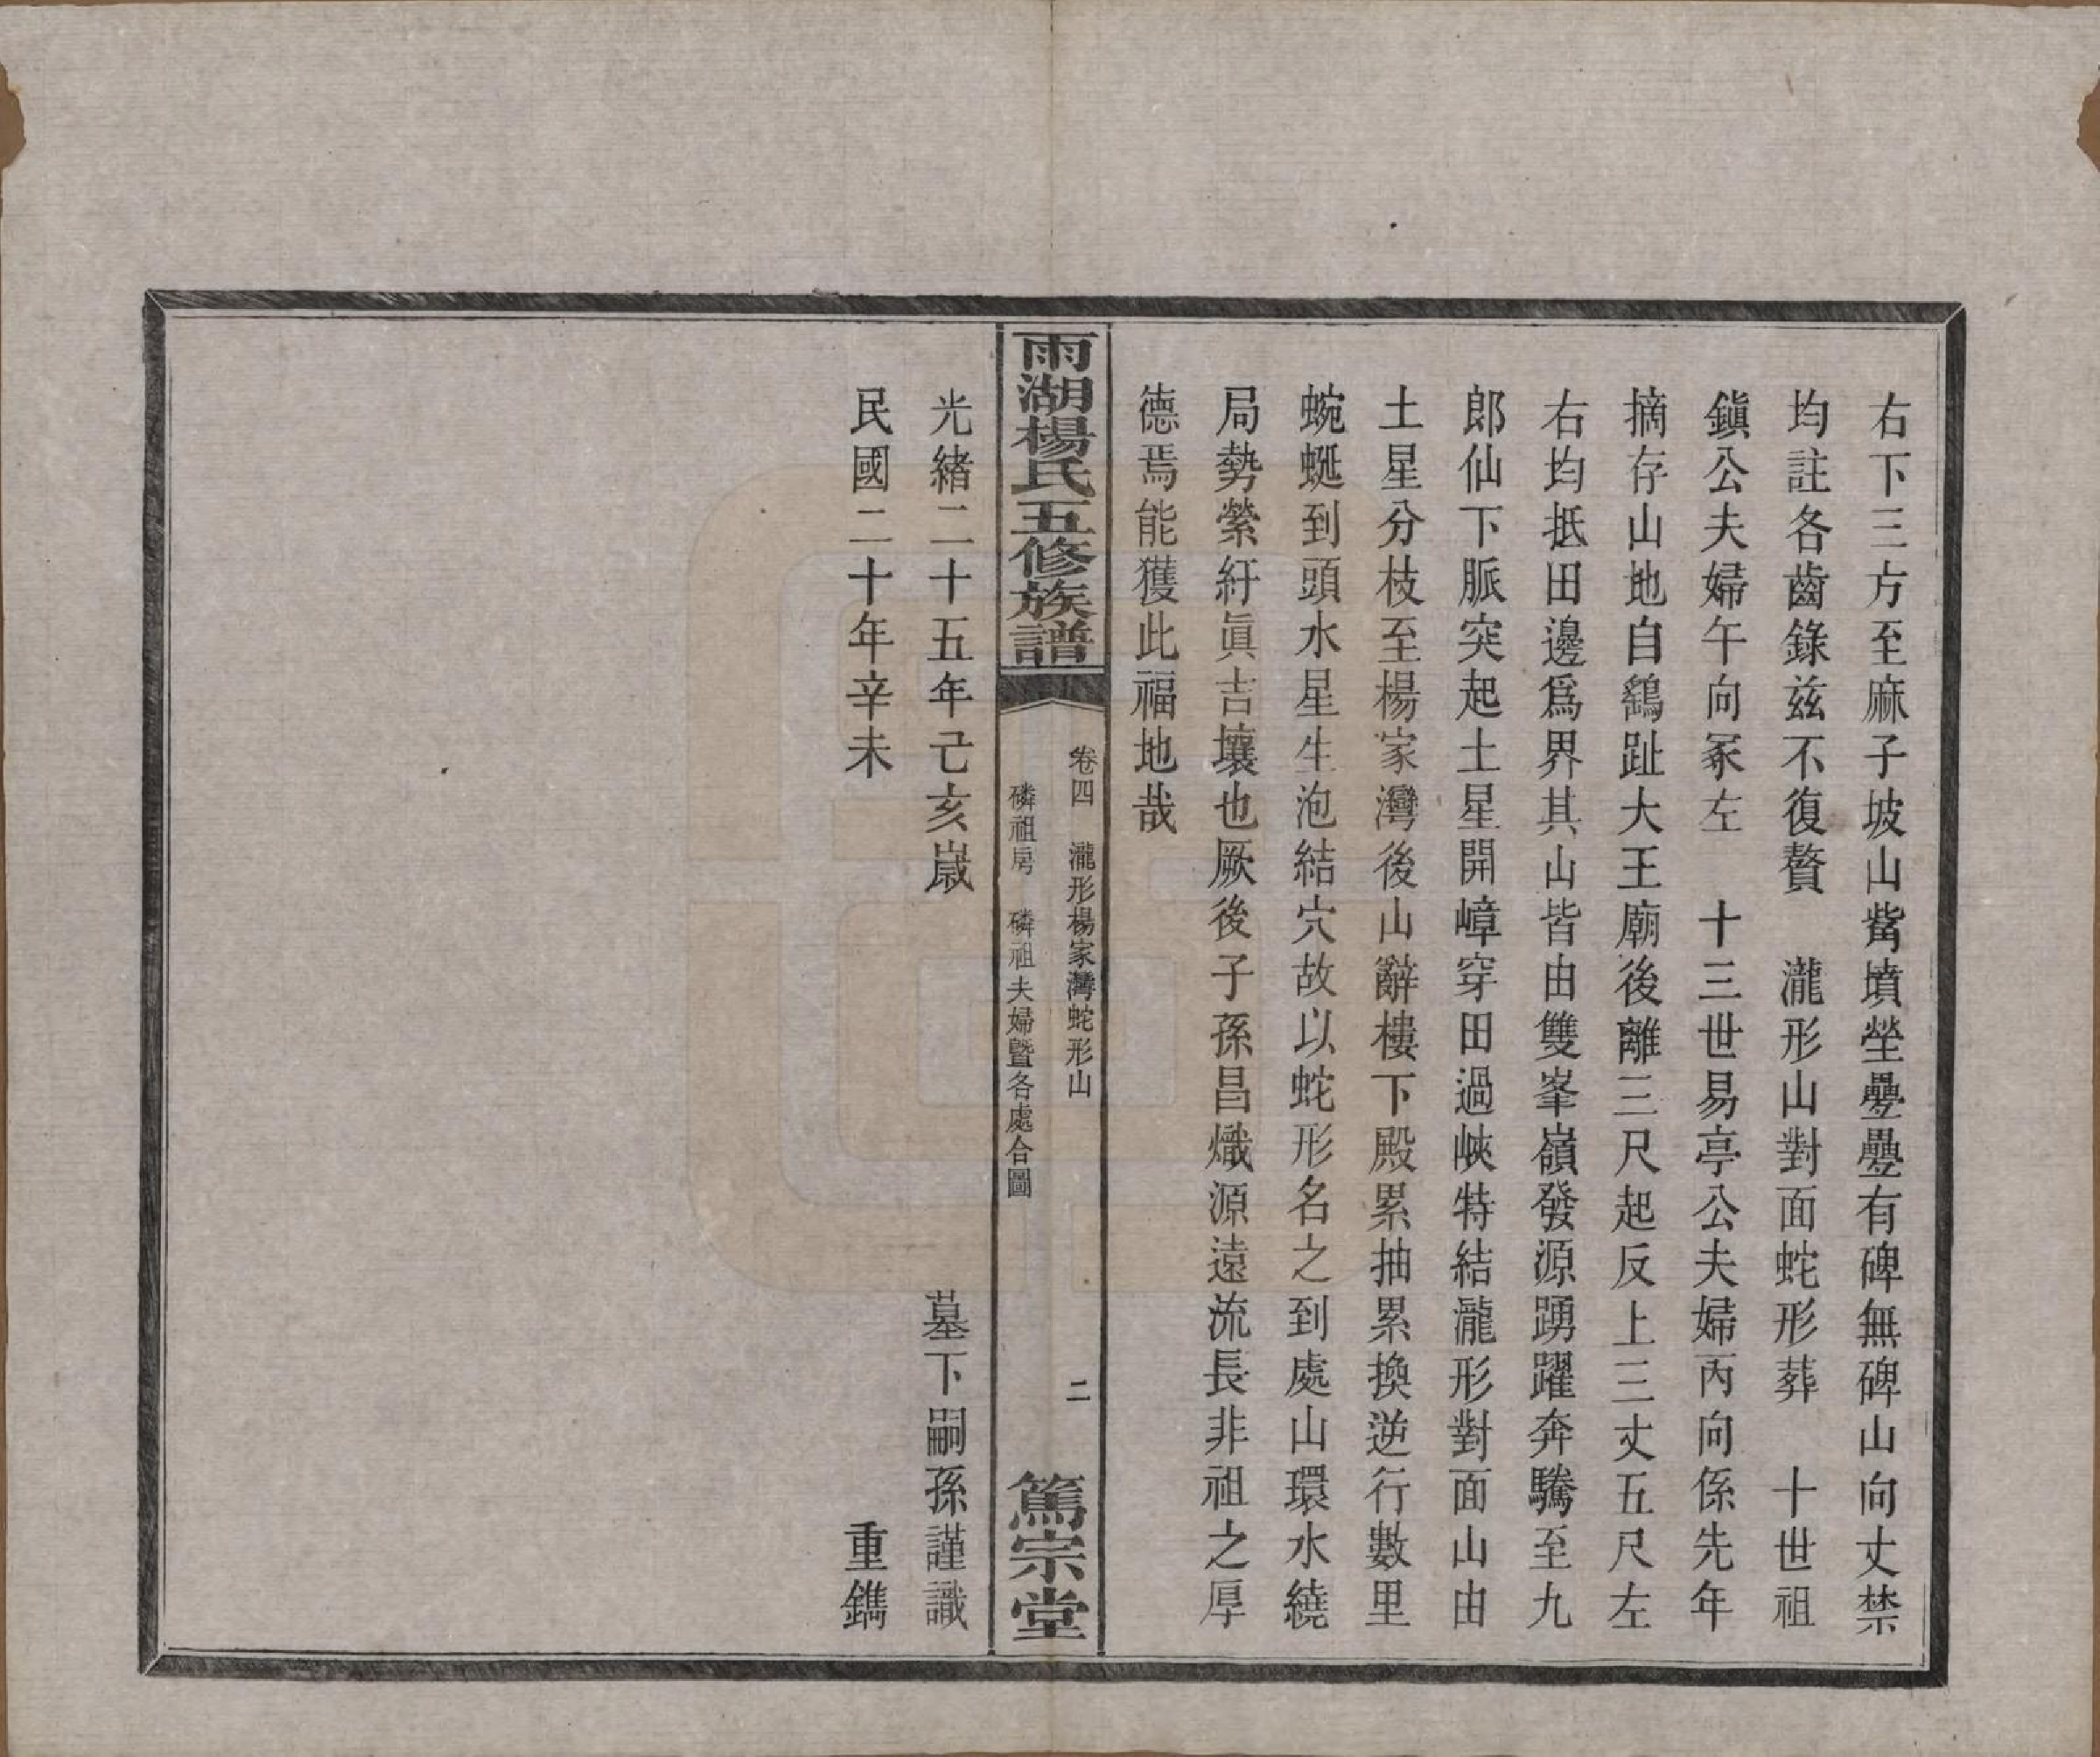 右下三方至麻子坡山觜墳塋疊疊有碑無碑山向丈禁
均註各齒錄茲不復贅　瀧形山對面蛇形葬　十世祖
鎭公夫婦午向冢左　十三世易亭公夫婦丙向係先年
摘存山地自鷂趾大王廟後離三尺起反上三丈五尺左
右均抵田邊爲界其山皆由雙峯嶺發源踴躍奔騰至九
郎仙下脈突起土星開嶂穿田過峽特結瀧形對面山由
土星分枝至楊家灣後山辭樓下殿累抽累換逆行數里
蜿蜒到頭水星生泡結穴故以蛇形名之到處山環水繞
局勢縈紆眞吉壤也厥後子孫昌熾源遠流長非祖之厚
德焉能獲此福地哉
雨湖楊氏五修族譜
卷四　瀧形楊家灣蛇形山
磷祖房　磷祖夫婦曁各處合圖
二
篤宗堂
光緒二十五年己亥歲　墓下嗣孫謹識
民國二十年辛未　重鐫